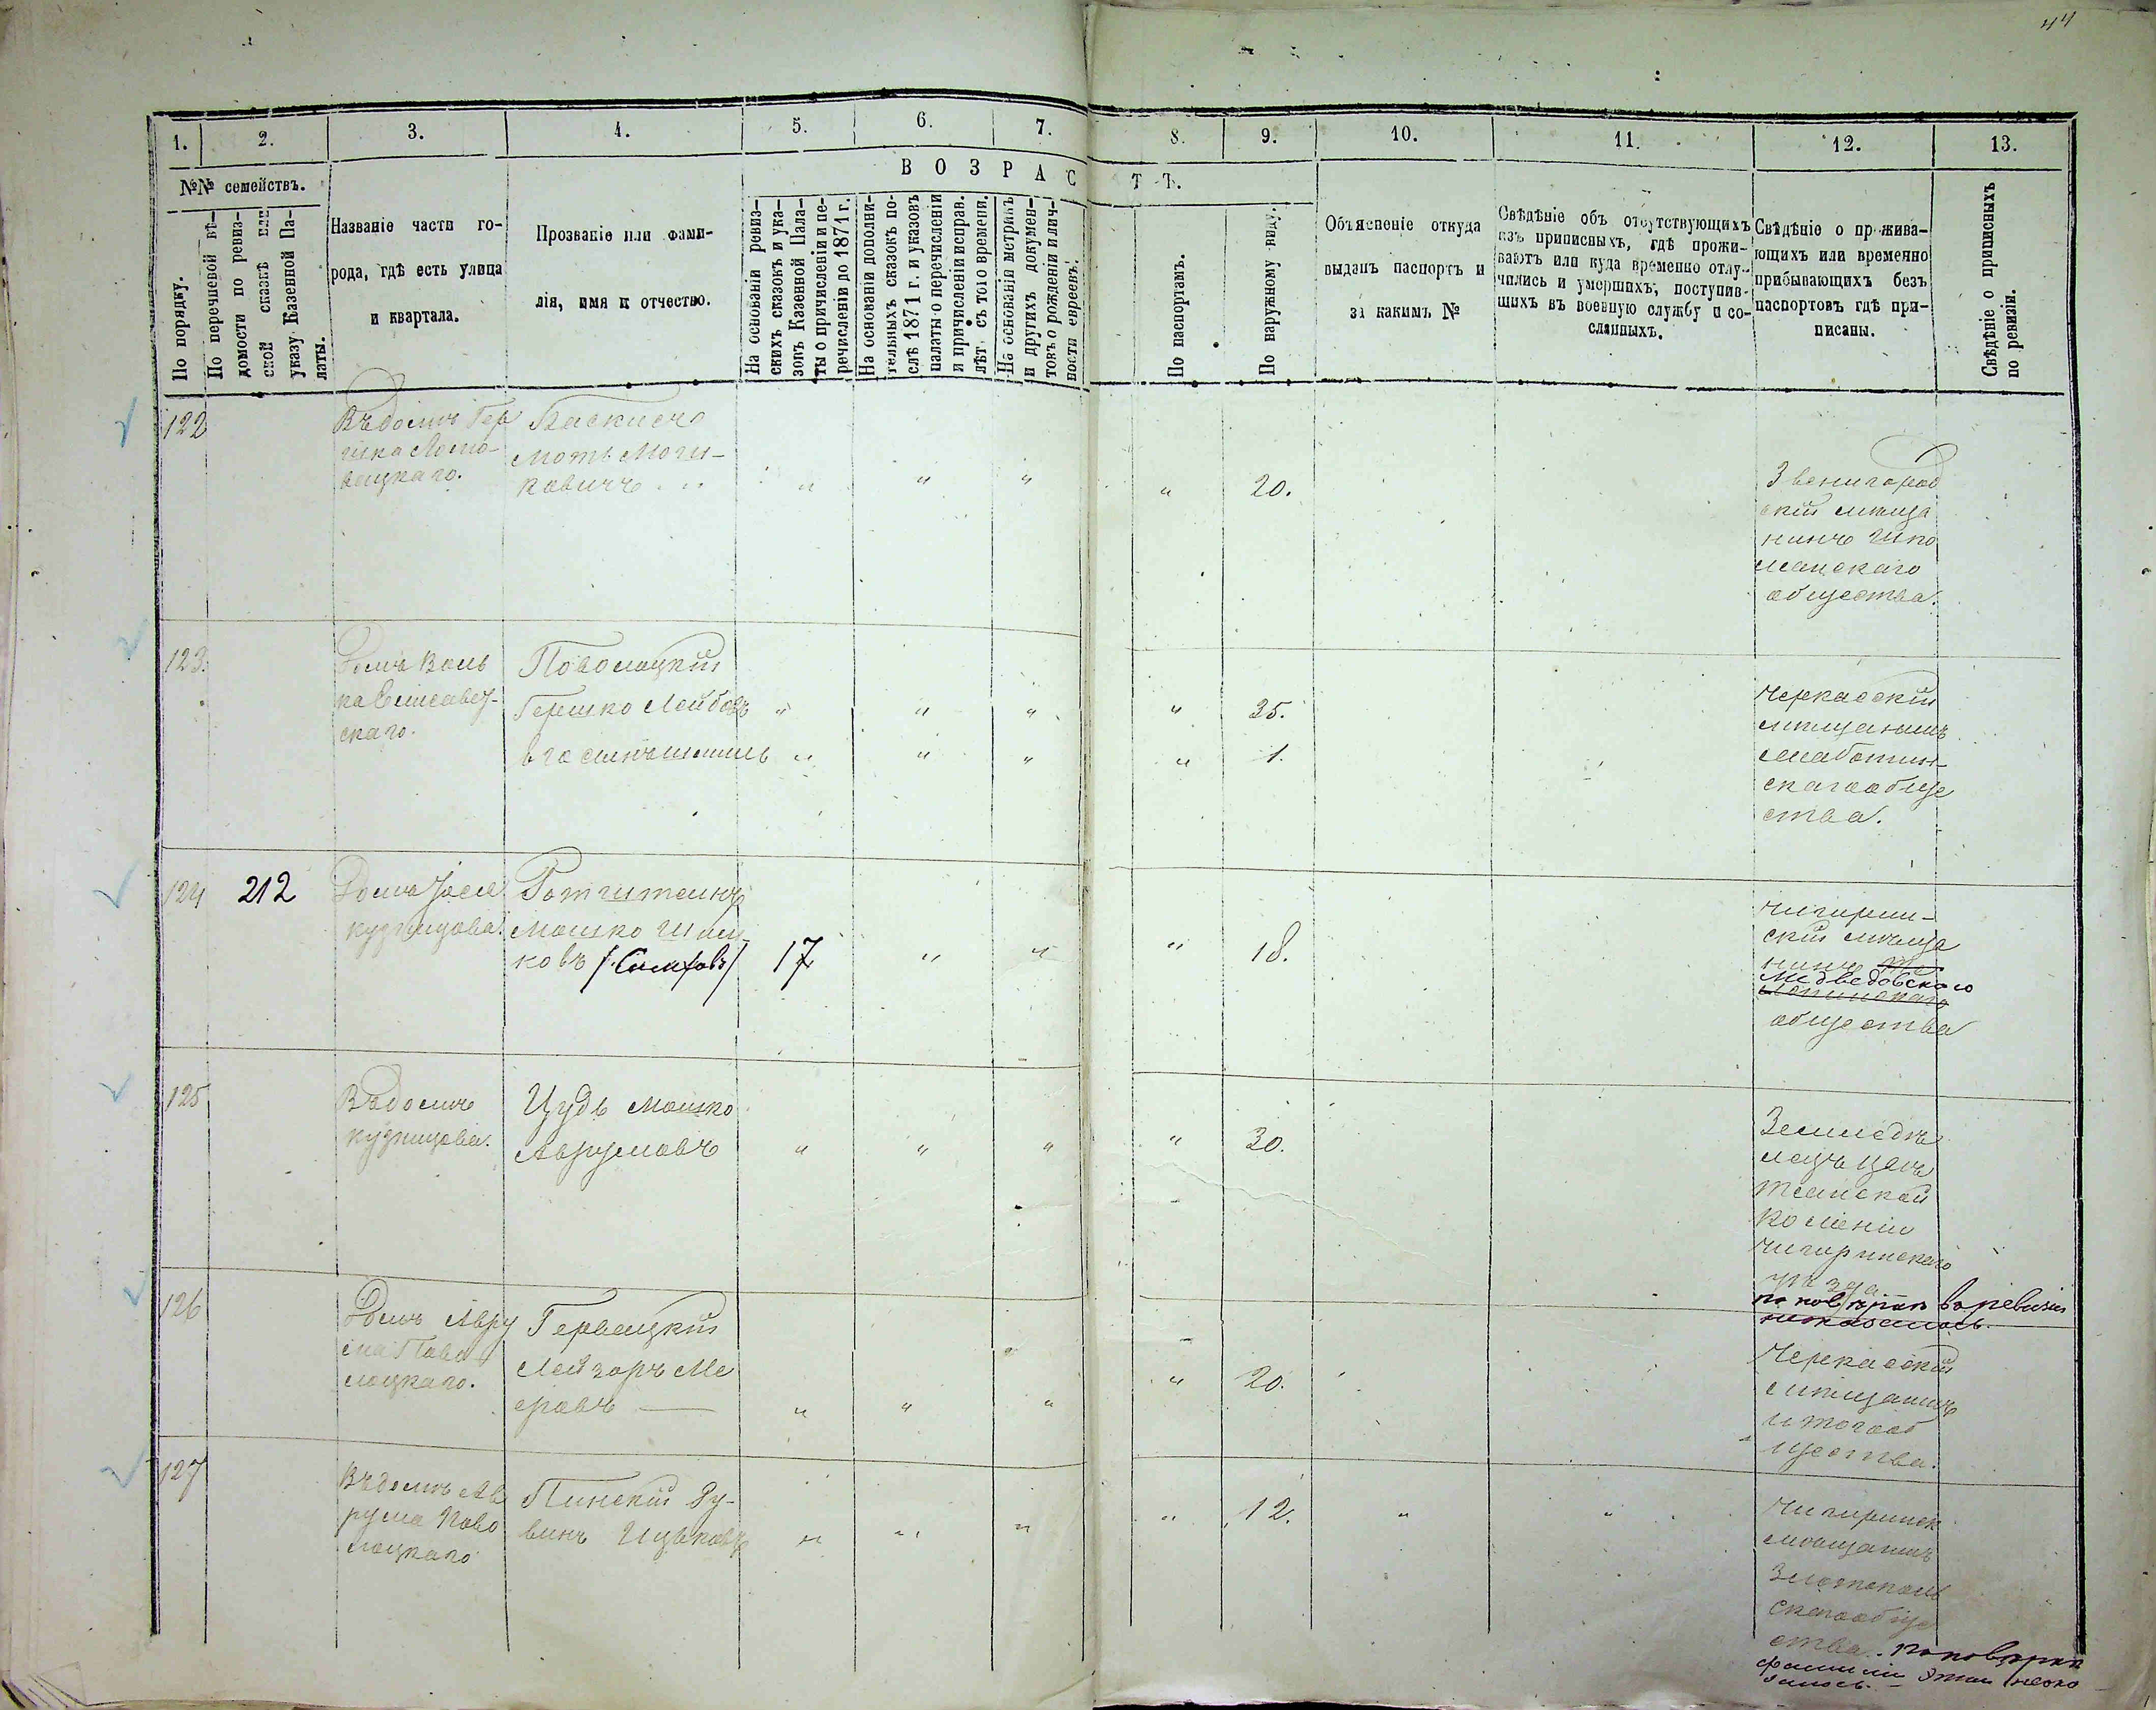 44
1. 2. 3. 4. 5. 6. 7. 8. 9. 10. 11. 12. 13.
№№ семействъ.
ВОЗРАСТЪ.
По порядку.
По перечневой вѣ-
домости по ревиз-
ской сказкѣ или
указу Казенной Па-
латы.
Названіе части го-
рода, гдѣ есть улица
и квартала.
Прозваніе или фами-
лія, имя и отчество.
На основаніи ревиз-
скихъ сказокъ и ука-
зовъ Казенной Пала-
ты о причисленіи и пе-
речисленіи до 1871 г.
На основаніи дополни-
тельныхъ сказокъ по-
слѣ 1871 г. и указовъ
палаты о перечисленіи
и причисленіи исправ.
лѣт. съ того времени.
На основаніи метрикъ
и другихъ докумен-
товъ о рожденіи и лич-
ности евреевъ.
По паспортамъ.
По наружному виду.
Объясненіе откуда
выданъ паспортъ и
за какимъ №
Свѣдѣніе объ отсутствующихъ
изъ приписныхъ, гдѣ прожи-
ваютъ или куда временно отлу-
чились и умершихъ, поступив-
шихъ въ военную службу и со-
сланныхъ.
Свѣдѣніе о прожива-
ющихъ или временно
прибывающихъ безъ
паспортовъ гдѣ при-
писаны.
Свѣдѣніе о приписныхъ
по ревизіи.
122
Въ домѣ Гер
шка
вецкаго.
Мотъ Мош-
ковичъ " " " " 20.
Звенигород
скій мѣща
нинъ Шпо
лянскаго
общества.
123.
Домъ Воль
ка Елисавет-
скаго.
Поволоцкій
Гершко Лейбовъ " " " " 35.
его сынъ " " " " 1.
Черкасскій
мѣщанинъ
Смѣлотин-
скаго обще
ства.
124 212
Домъ Іося
кузнецова.
Ротштейнъ
Мошко Шлі
ковъ 17 " " " 18.
Чигирин-
скій мѣща
нинъ
Медведовскаго
общества
125
Въ домѣ
кузнецова.
Цудъ Мошко
Аврумовъ " " " " 30.
Земледѣ
лецъ
колоніи
Чигиринскаго
уѣзда
по повѣркѣ въ ревизіи
не оказалось.
126
Домъ Авру
ма Пово
лоцкаго.
Лейзоръ Ме
еровъ — " " " " 20.
Черкасскій
мѣщанинъ
и того об
щества.
127
Въ домѣ Ав
рума Пово
лоцкаго
Пинскій Ру-
винъ Ицьковъ " " " " 12. " "
Чигиринск
мѣщанинъ
Златополь
скаго обще
ства. По повѣркѣ
фамиліи этой не ока
залось. —